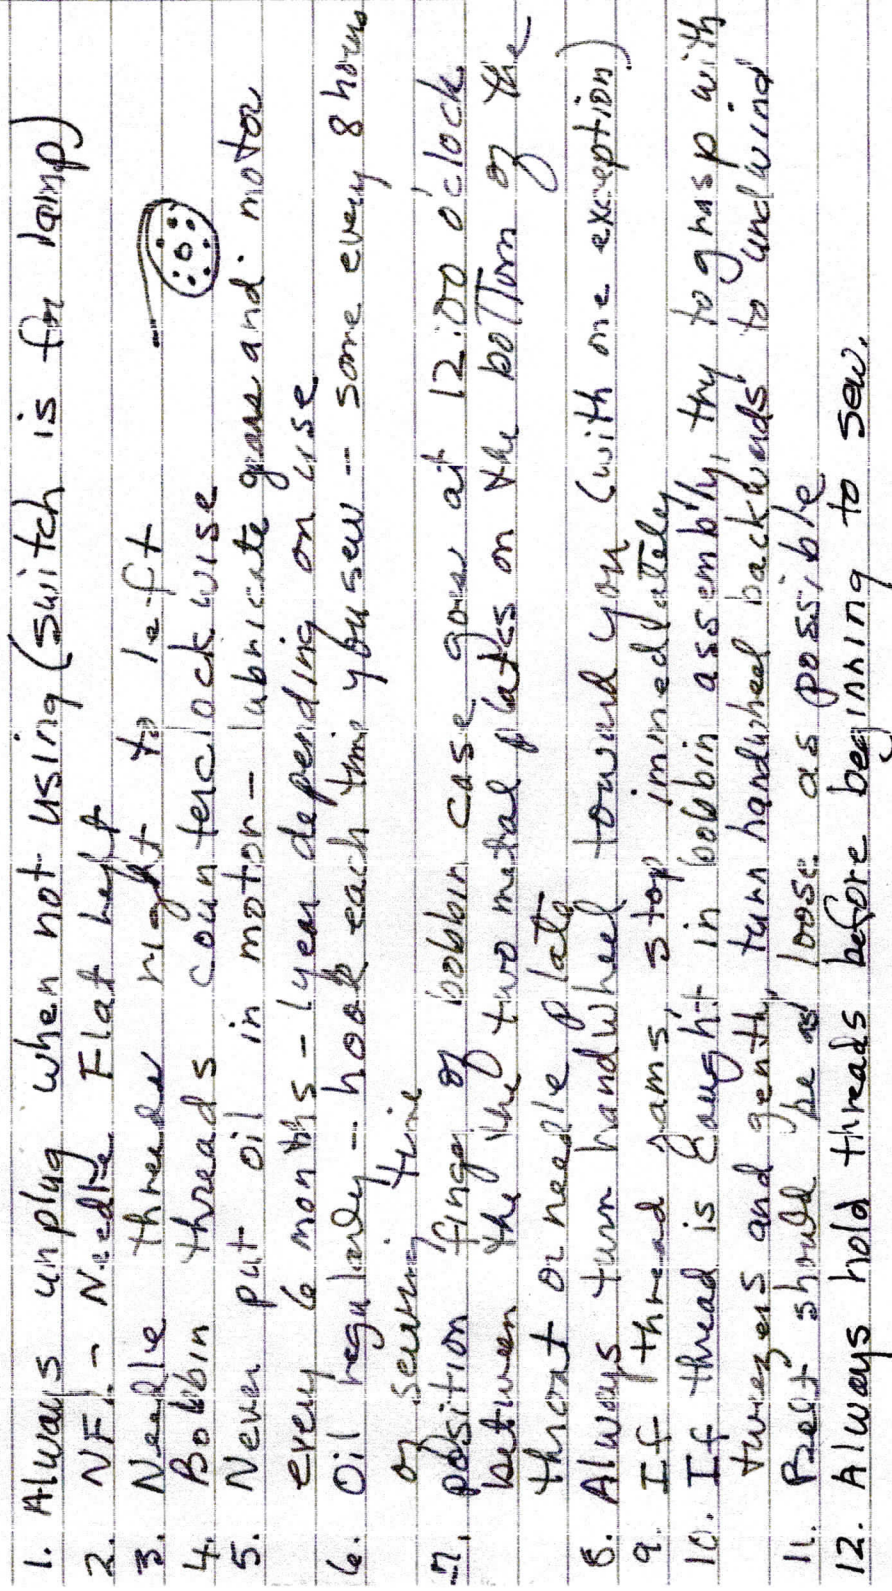 1. Always unplug when not using (switch is for lamp)
2. NFL - Needle Flat left
3. Needle threads right to left
4. Bobbin threads counterclockwise
5. Never put oil in motor - lubricate gears and motor
every 6 months - 1 year depending on use
6. Oil regularly -- hook each time you sew -- some every 8 hours
of sewing time
7. position finger of bobbin case goes at 12:00 o'clock
between the the two metal plates on the bottom of the
throat or needle plate
8. Always turn handwheel toward you (with one exception)
9. If thread jams, stop immediately
10. If thread is caught in bobbin assembly, try to grasp with
twiezers and gently turn handwheel backwards to undwind
11. Belt should be as loose as possible
12. Always hold threads before beginning to sew.